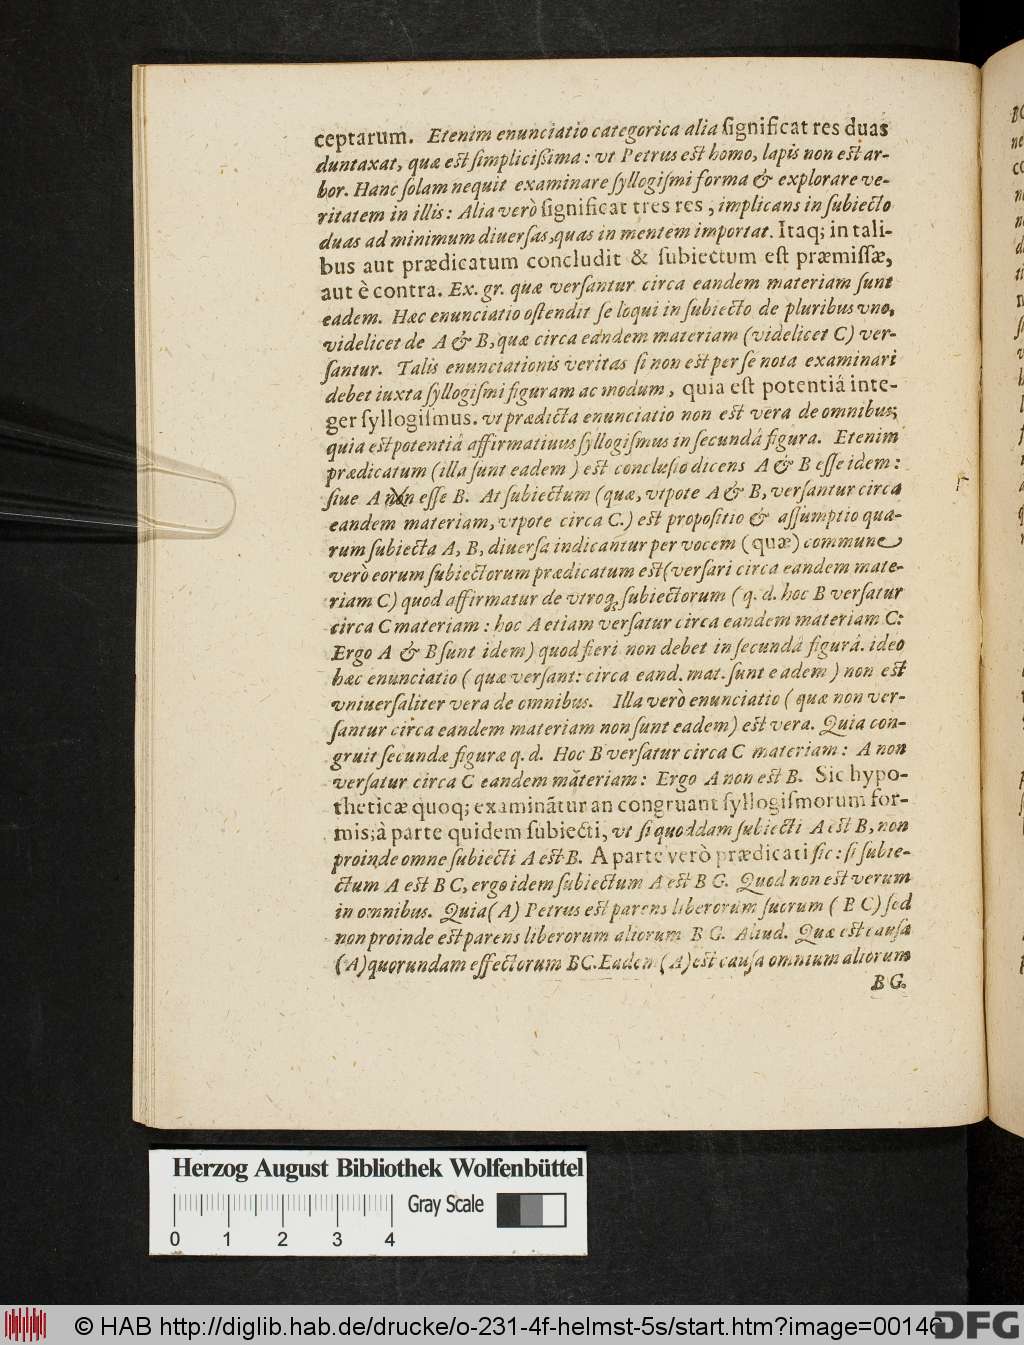 ceptarum. Etenim enunciatio categorica alia ſignificat res duas
duntaxat, quæ eſt ſimpliciſsima: vt Petrus eſt homo, lapis non eſt ar-
bor. Hanc ſolam nequit examinare ſyllogiſmi forma & explorare ve-
ritatem in illis: Alia verò ſignificat tres res, implicans in ſubiecto
duas ad minimum diuerſas, quas in mentem importat. Itaq; in tali-
bus aut prædicatum concludit & ſubiectum eſt præmiſſæ,
aut è contra. Ex. gr. quæ verſantur circa eandem materiam ſunt
eadem. Hæc enunciatio oſtendit ſe loqui in ſubiecto de pluribus vno,
videlicet de A & B, quæ circa eandem materiam (videlicet C) ver-
ſantur. Talis enunciationis veritas ſi non eſt per ſe nota examinari
debet iuxta ſyllogiſmi figuram ac modum, quia eſt potentiâ inte-
ger ſyllogiſmus. vt prædicta enunciatio non eſt vera de omnibus;
quia eſt potentiâ affirmatiuus ſyllogiſmus in ſecundâ figura. Etenim
prædicatum (illa ſunt eadem) eſt concluſio dicens A & B eſſe idem:
ſiue A non eſſe B. At ſubiectum (quæ, vtpote A & B, verſantur circa
eandem materiam, vtpote circa C.) eſt propoſitio & aſſumptio qua-
rum ſubiecta A, B, diuerſa indicantur per vocem (quæ) commune
verò eorum ſubiectorum prædicatum eſt (verſari circa eandem mate-
riam C) quod affirmatur de vtroq; ſubiectorum (q. d. hoc B verſatur
circa C materiam: hoc A etiam verſatur circa eandem materiam C:
Ergo A & B ſunt idem) quod fieri non debet in ſecundâ figurâ. ideo
hæc enunciatio (quæ verſant: circa eand. mat. ſunt eadem) non eſt
vniuerſaliter vera de omnibus. Illa verò enunciatio (quæ non ver-
ſantur circa eandem materiam non ſunt eadem) eſt vera. Quia con-
gruit ſecundæ figuræ q. d. Hoc B verſatur circa C materiam: A non
verſatur circa C eandem materiam: Ergo A non eſt B. Sic hypo-
theticæ quoq; examinãtur an congruant ſyllogiſmorum for-
mis; à parte quidem ſubiecti, vt ſi quoddam ſubiecti A eſt B, non
proinde omne ſubiecti A eſt B. A parte verò prædicati ſic: ſi ſubie-
ctum A eſt B C, ergo idem ſubiectum A eſt B G. Quod non eſt verum
in omnibus. Quia (A) Petrus eſt parens liberorum ſuorum (B C) ſed
non proinde eſt parens liberorum aliorum B G. Aliud. Quæ eſt cauſa
(A) quorundam effectorum BC. Eadem (A) eſt cauſa omnium aliorum
B G.
Herzog August Bibliothek Wolfenbüttel
Gray Scale
0 1 2 3 4
© HAB http://diglib.hab.de/drucke/o-231-4f-helmst-5s/start.htm?image=00146
DFG